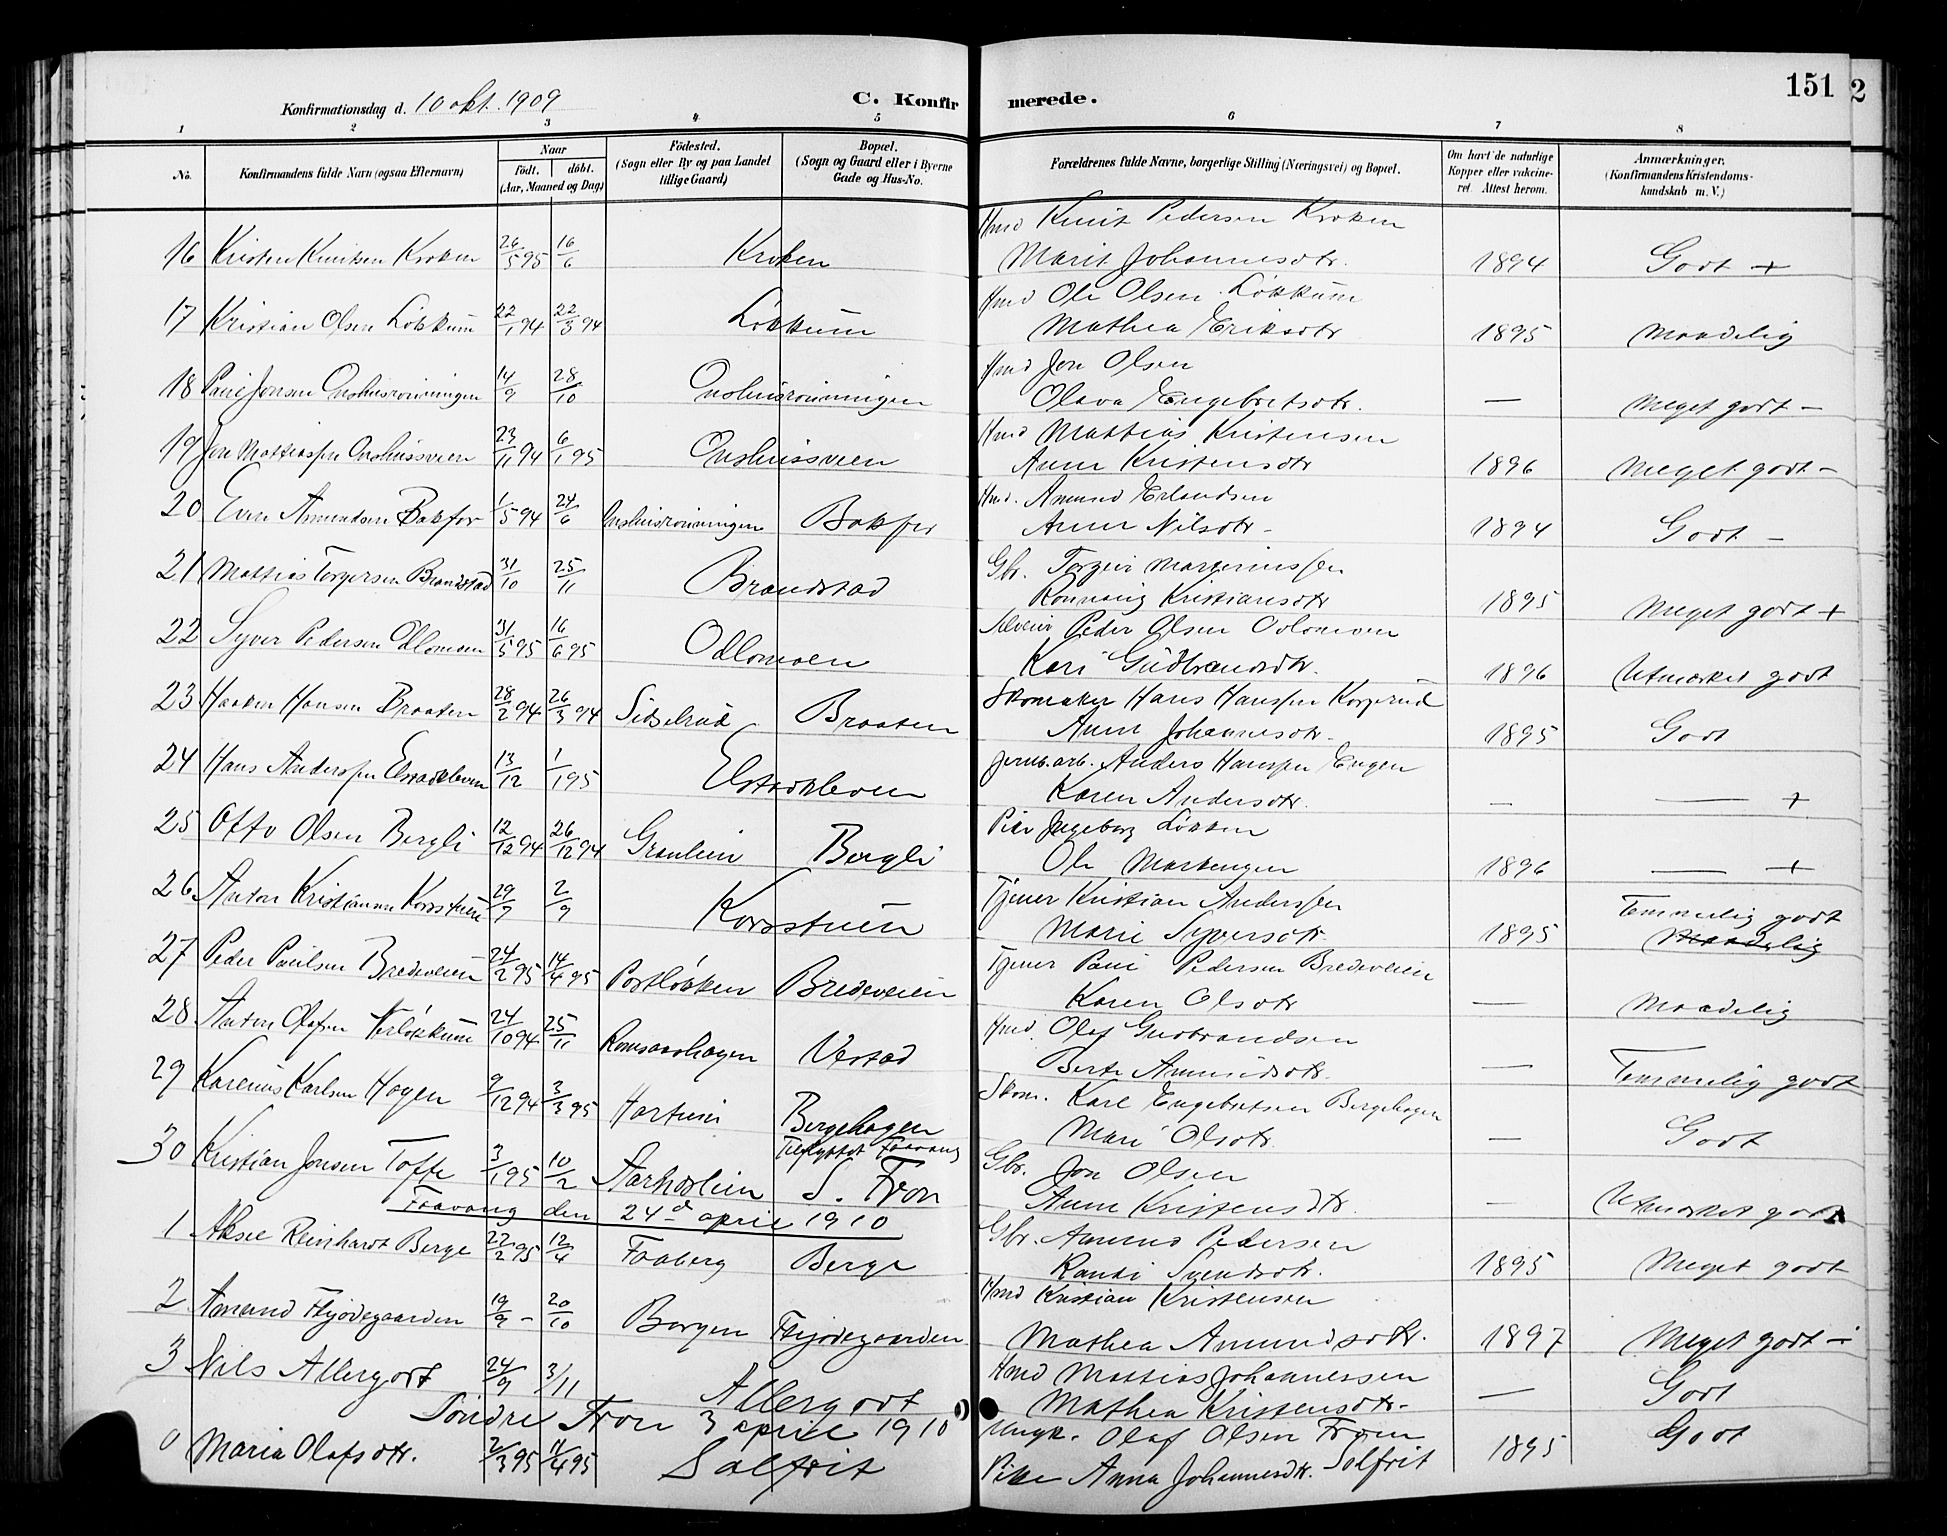 151
2
Konfirmationsdag d. 10 okt. 1909
C. Konfirmerede.
1 2 3 4 5 6 7 8
No. Konfirmandens fulde Navn (ogsaa Efternavn) Naar født. døbt. (Aar, Maaned og Dag) Fødested. (Sogn eller By og paa Landet tillige Gaard) Bopæl. (Sogn og Gaard eller i Byerne Gade og Hus-No. Forældrenes fulde Navne, borgerlige Stilling (Næringsvei) og Bopæl. Om havt de naturlige Kopper eller vakcineret. Attest herom. Anmærkninger. (Konfirmandens Kristendomskundskab m. V.)
Hmd Knut Pedersen Kroken
16 Kristen Knutsen Kroken 26/5 95 16/6 Kroken Marit Johannesdtr. 1894 Godt +
Hmd Ole Olsen Løkkum
17 Kristian Olsen Løkkum 22/1 94 22/3 94 Løkkum Mathea Eriksdtr 1895 Maadelig
Hmd Jon Olsen
18 Paul Jonsen Onshusrønningen 14/9 28/10 Onshusrønningen Olava Engebretsdtr. — Meget godt –
Hmd Mattias Kristensen
19 Jon Mattiassen Onshusveen 23/11 94 6/1 95 Onshusveen Anne Kristensdtr 1896 Meget godt –
Hmd. Amund Erlandsen
20 Even Amundsen Bakfor 1/5 94 24/6 Onshusrønningen Bakfor Anne Nilsdtr – 1894 Godt –
Gbr. Torgeir
21 Mattias Torgersen Brandstad 31/10 25/11 Brandstad Rønnaug Kristiansdtr 1895 Meget godt +
Peder Olsen Odlomoen
22 Syver Pedersen Odlomoen 31/5 95 16/6 95 Odlomoen Kari Gudbrandsdtr. 1896 Utmærket godt
Skomaker Hans Hanssen Korperud
23 Haaken Hansen Braaten 28/2 94 26/3 94 Sidselrud Braaten Anne Johannesdtr. 1895 Godt
Jernb.arb. Anders Hanssen Engen
24 Hans Anderssen Elstadkleven 13/12 1/1 95 Elstadkleven Karen Andersdtr. — — +
Pike Ingeborg Løkken
25 Otto Olsen Bergli 12/12 94 26/12 94 Graulien Bergli Ole Morkengen 1896 — +
Tjener Kristian Anderssen
26 Anton Kristiansen Korsstuen 29/7 2/9 Korsstuen Marie Syversdtr. 1895 Temmelig godt
Maadelig
Tjener Paul Pedersen Bredeveien
27 Peder Paulsen Bredeveien 24/2 95 14/4 95 Postløkken Bredeveien Karen Olsdtr — Maadelig
Hmd. Olaf Gudbrandsen
28 Anton Olafsen 24/10 94 25/11 Romsaashagen Vestad Berte Amundsdtr. — Temmelig godt
Skom. Karl Engebretsen Bergehagen
29 Karenus Karlsen Hagen 9/12 94 3/3 95 Bergehagen Mari Olsdtr. — Godt
Tilflyttet Faavang
Gbr. Jon Olsen
30 Kristian Jonsen Tofte 3/1 95 10/2 S. Fron Anne Kristensdtr. — Utmærket godt
Faavang den 24de april 1910
Gbr. Amund Pedersen
1 Aksel Reinhardt Berge 22/2 95 12/4 Faaberg Berge Randi Svendsdtr. 1895 Meget godt
Hmd Kristian Kristensen
2 Amund Fløjdegaarden 19/9 – 20/10 Borgen Fløjdegaarden Mathea Amundsdtr. 1897 Meget godt –
Hmd Mattias Johannessen
3 Nils Allergodt 24/9 3/11 Allergodt Mathea Kristensdtr. — Godt
Søndre Fron 3 april 1910
Ungk. Olaf Olsen Fron
0 Maria Olafsdtr. 2/3 95 4/4 95 Solfrit Pike Anna Johannesdtr. Solfrit 1895 Godt